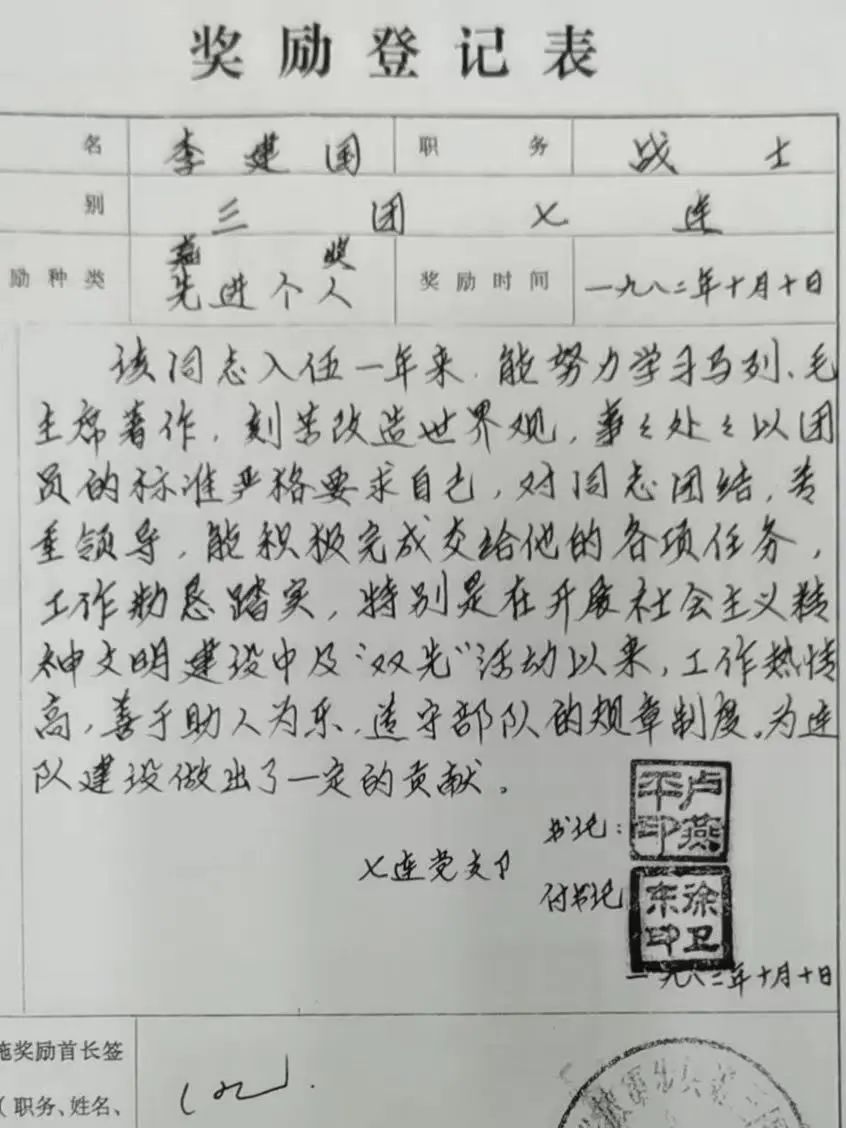 奖励登记表
名 李建国 职务 战士
别 三团七连
嘉奖
励种类 先进个人 奖励时间 一九八二年十月十日
该同志入伍一年来.能努力学习马列、毛
主席著作,刻苦改造世界观,事々处々以团
员的标准严格要求自己,对同志团结,尊
重领导,能积极完成交给他的各项任务,
工作勤恳踏实,特别是在开展社会主义精
神文明建设中及“双先”活动以来,工作热情
高,善于助人为乐.遵守部队的规章制度。为连
队建设做出了一定的贡献.
书记: 卢燕平印
七连党支卩
付书记 徐卫东印
一九八二年十月十日
施奖励首长签
(职务、姓名、